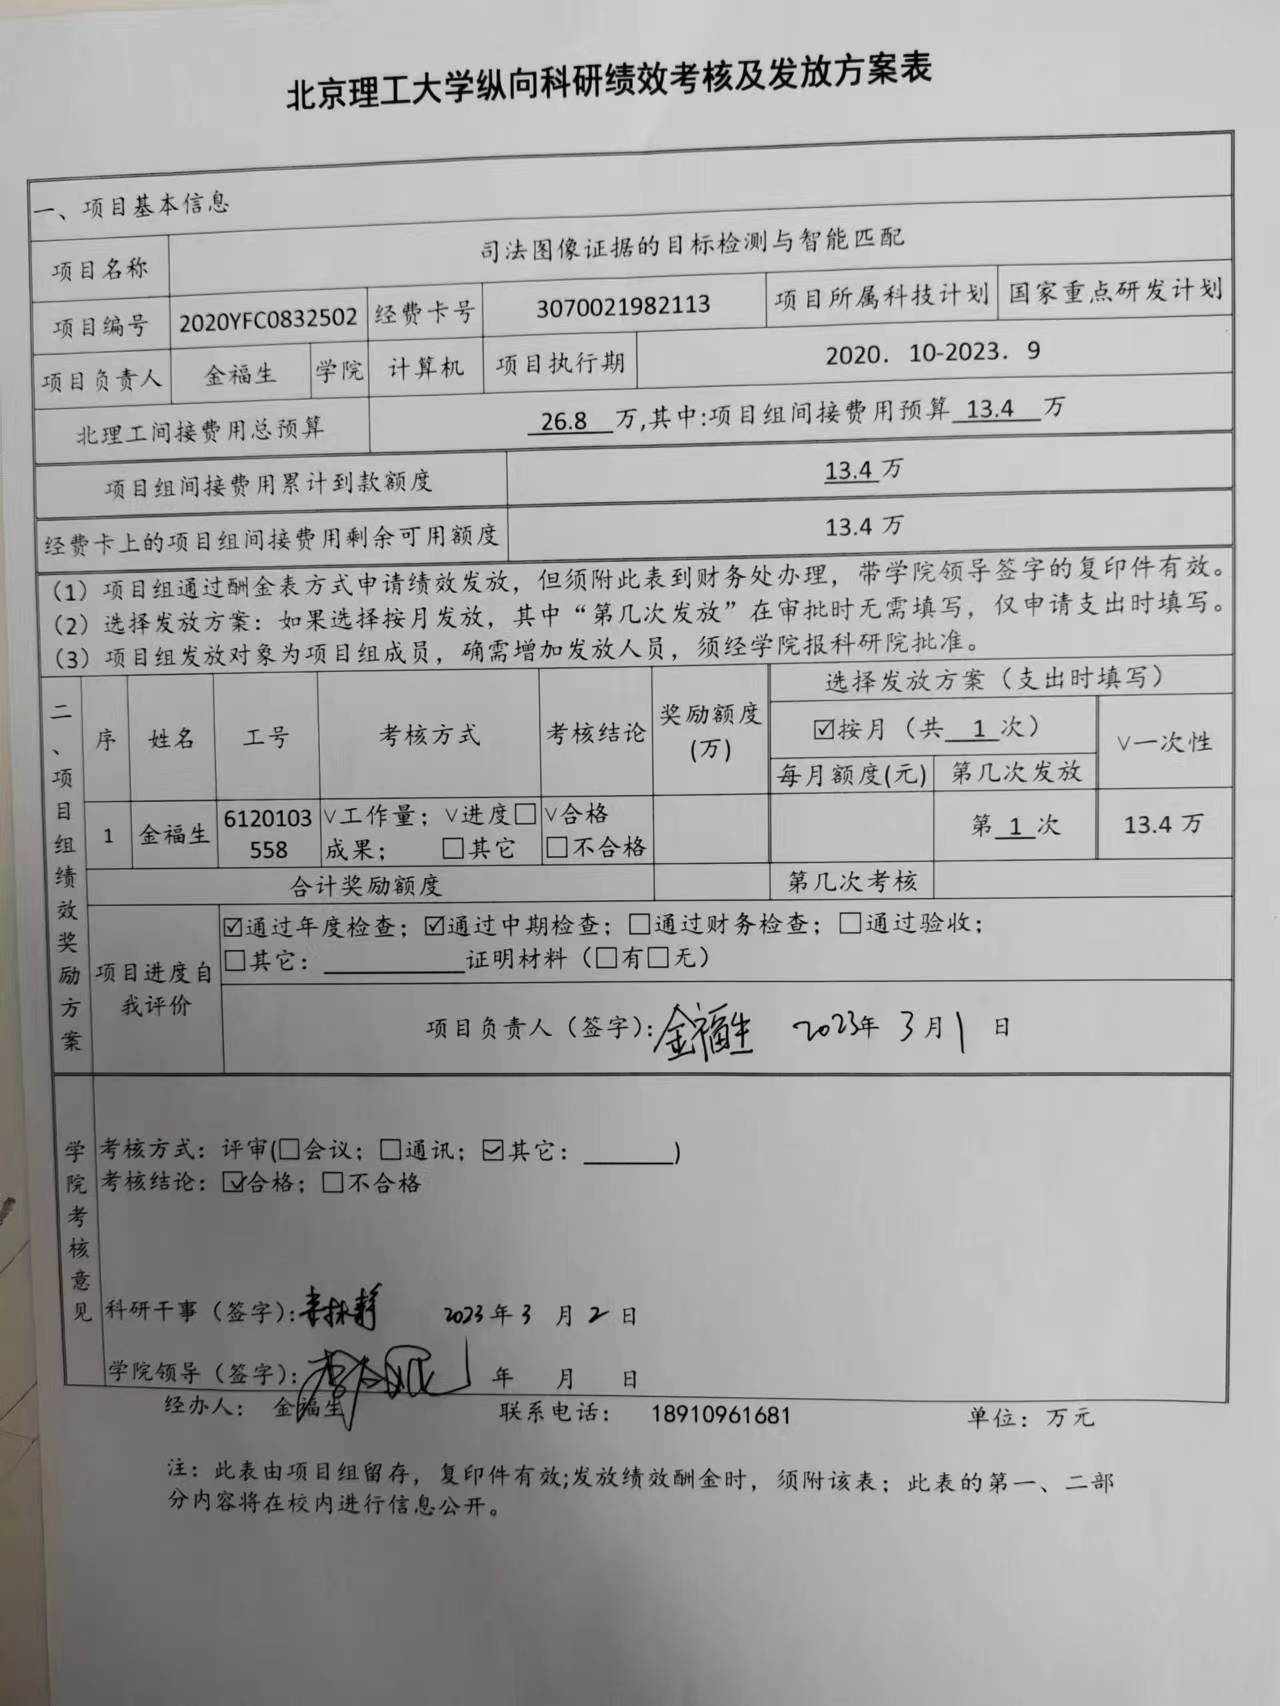 北京理工大学纵向科研绩效考核及发放方案表
一、项目基本信息
项目名称 司法图像证据的目标检测与智能匹配
项目编号 2020YFC0832502 经费卡号 3070021982113 项目所属科技计划 国家重点研发计划
项目负责人 金福生 学院 计算机 项目执行期 2020. 10-2023. 9
北理工间接费用总预算 26.8 万,其中:项目组间接费用预算 13.4 万
项目组间接费用累计到款额度 13.4 万
经费卡上的项目组间接费用剩余可用额度 13.4 万
(1) 项目组通过酬金表方式申请绩效发放，但须附此表到财务处办理，带学院领导签字的复印件有效。
(2) 选择发放方案：如果选择按月发放，其中“第几次发放”在审批时无需填写，仅申请支出时填写。
(3) 项目组发放对象为项目组成员，确需增加发放人员，须经学院报科研院批准。
二、项目组绩效奖励方案
序 姓名 工号 考核方式 考核结论 奖励额度(万) 选择发放方案（支出时填写）
☑按月（共 1 次） ∨一次性
每月额度(元) 第几次发放
1 金福生 6120103558 ∨工作量；∨进度□成果； □其它 ∨合格 □不合格 第 1 次 13.4 万
合计奖励额度 第几次考核
项目进度自我评价
☑通过年度检查；☑通过中期检查；□通过财务检查；□通过验收；
□其它：__________证明材料（□有□无）
项目负责人（签字）：金福生 2023年 3月1 日
学院考核意见
考核方式：评审(□会议；□通讯；☑其它：_______)
考核结论：☑合格；□不合格
科研干事（签字）： 2023年3 月 2 日
学院领导（签字）： 年 月 日
经办人： 金福生 联系电话： 18910961681 单位：万元
注：此表由项目组留存，复印件有效;发放绩效酬金时，须附该表；此表的第一、二部
分内容将在校内进行信息公开。